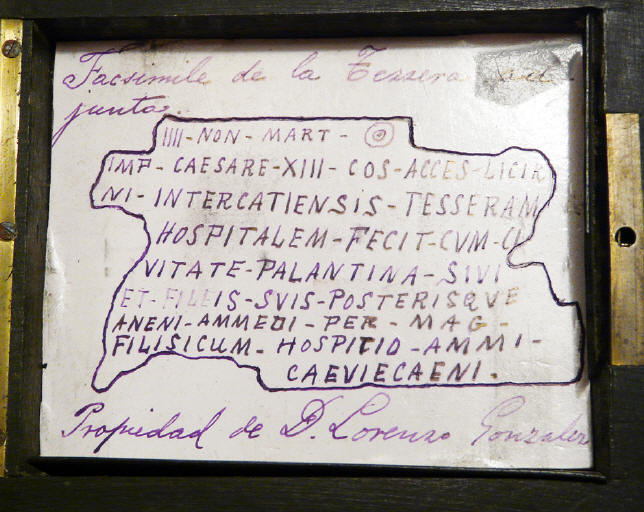 Facsimile de la Tessera ad
junta.
IIII-NON-MART-
IMP-CAESARE-XIII-COS-ACCES-LICIR
NI-INTERCATIENSIS-TESSERAM
HOSPITALEM-FECIT-CVM-CI
VITATE-PALANTINA-SIVI
ET-FILEIS-SVIS-POSTERISQVE
ANENI-AMMEDI-PER-MAG-
FILISICUM-HOSPITIO-AMMI-
CAEVIECAENI.
Propiedad de D. Lorenzo Gonzalez